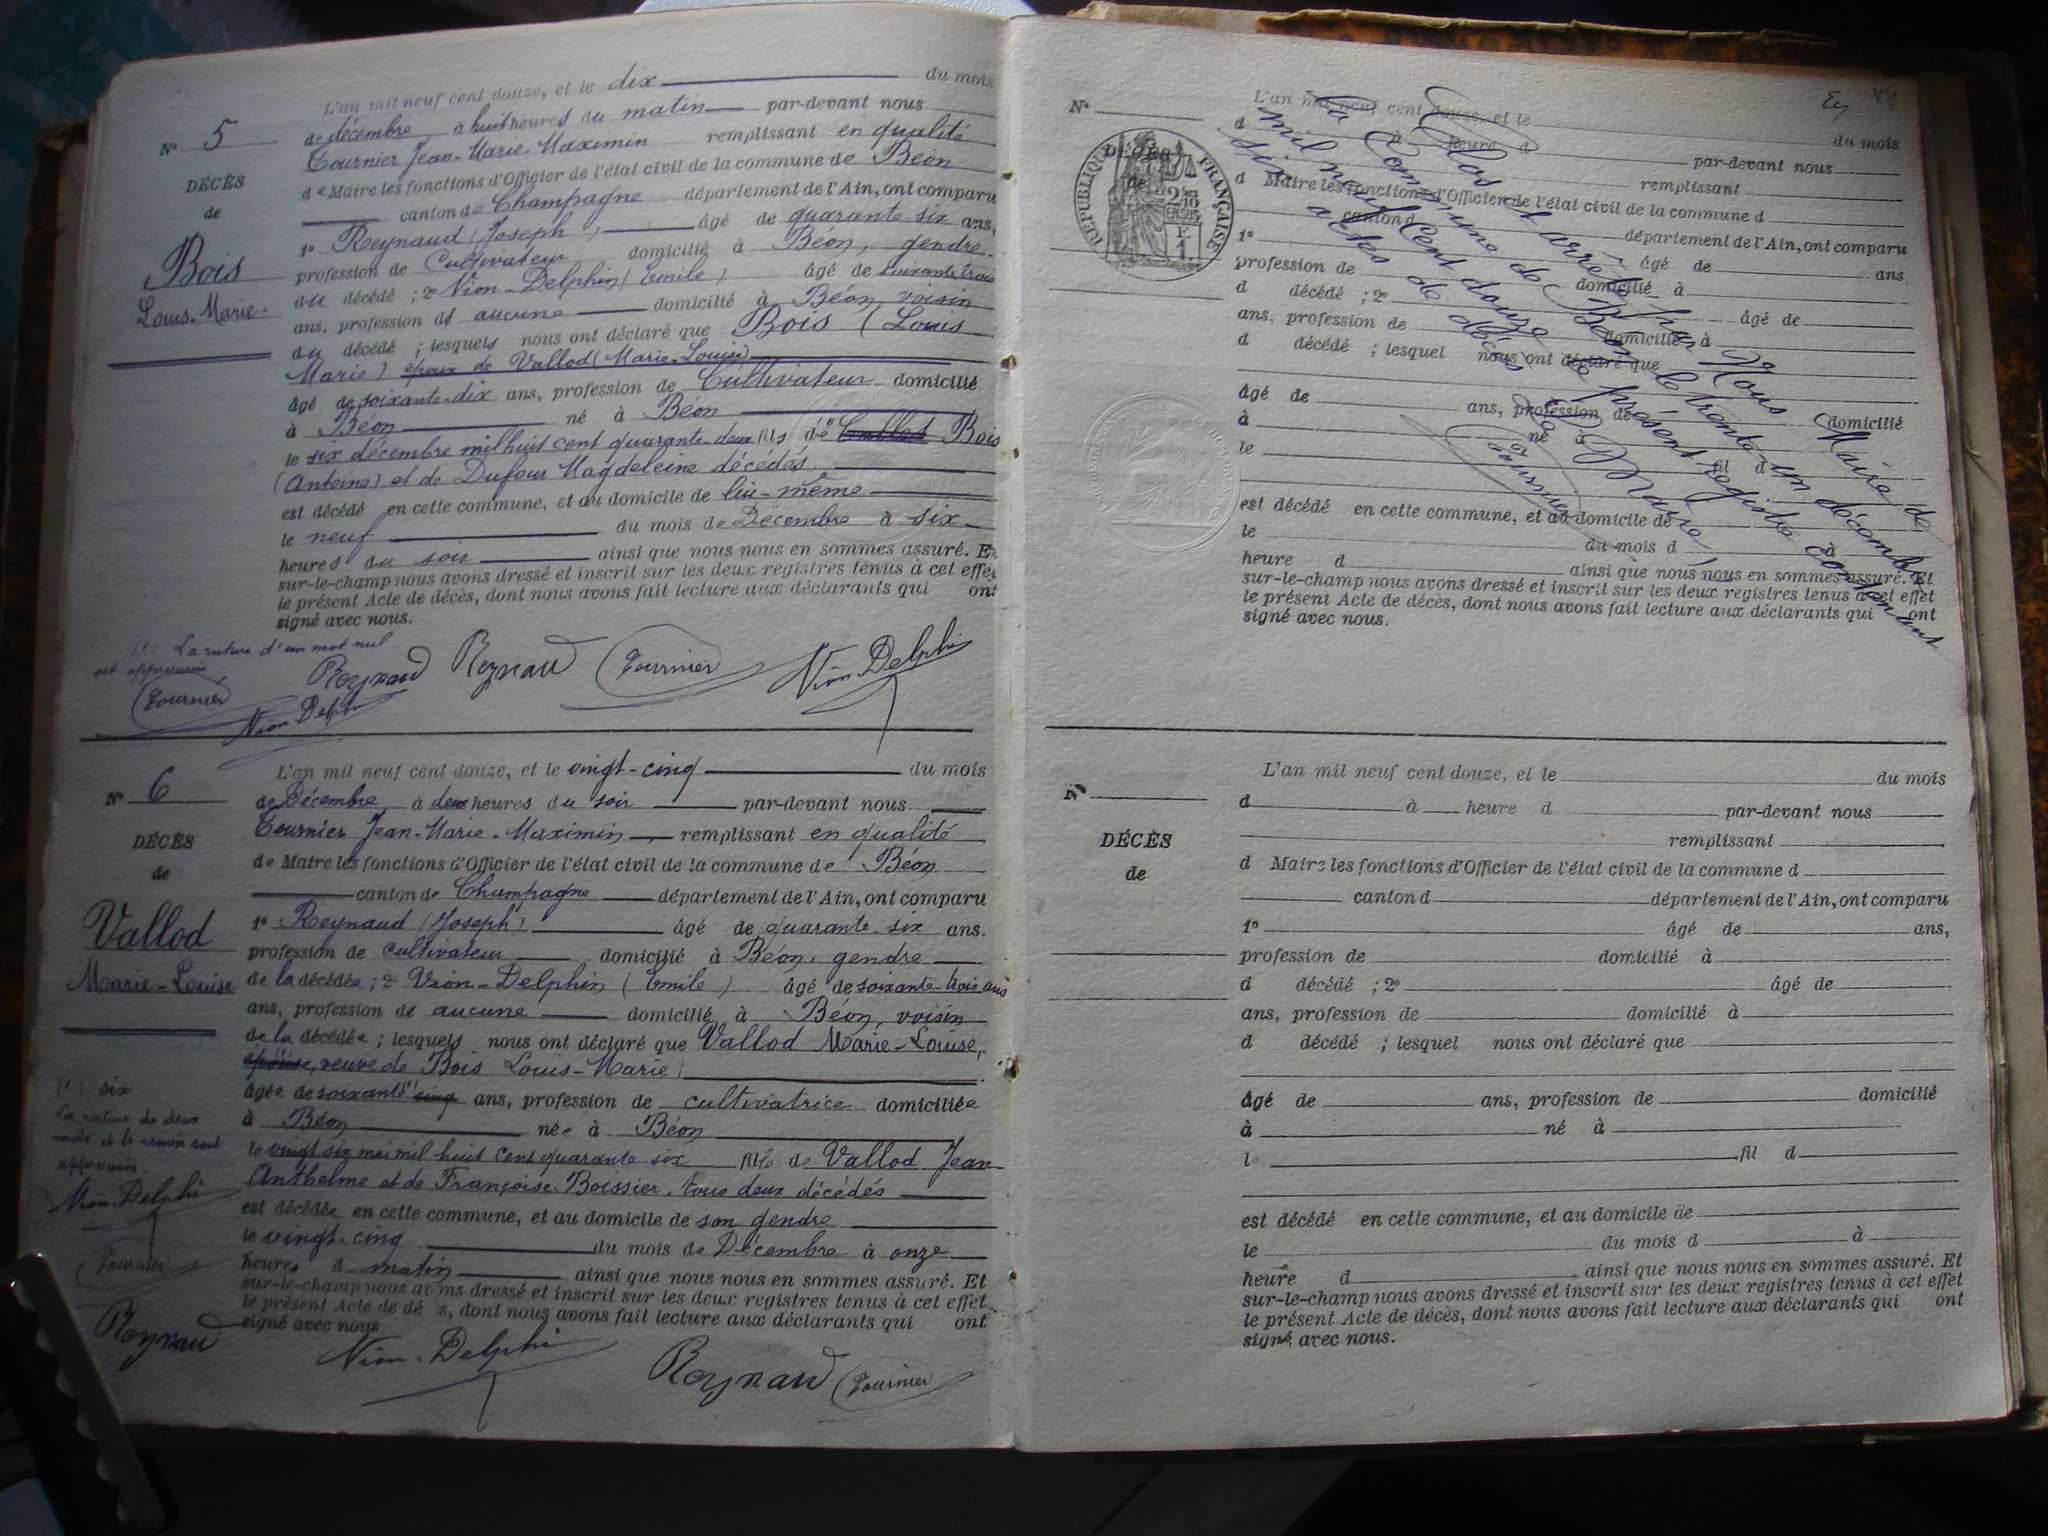 L'an mil neuf cent douze, et le dix du mois
N° 5 de décembre à huit heures du matin par-devant nous
Tournier Jean-Marie-Maximin remplissant en qualité
DÉCÈS de Maire les fonctions d'Officier de l'état civil de la commune de Béon
de canton de Champagne département de l'Ain, ont comparu
1° Reynaud (Joseph) âgé de quarante-six ans,
Bois profession de Cultivateur domicilié à Béon, gendre
du décédé ; 2° Vion-Delphin (Emile) âgé de soixante trois
Louis-Marie ans, profession de aucune domicilié à Béon, voisin
du décédé ; lesquels nous ont déclaré que Bois (Louis
Marie) époux de Vallod (Marie-Louise)
âgé de soixante-dix ans, profession de Cultivateur domicilié
à Béon né à Béon
le six décembre mil huit cent quarante-deux fils de Bois
(Antoine) et de Dufour Magdeleine décédés
est décédé en cette commune, et au domicile de lui-même
le neuf du mois de Décembre à six
heures du soir ainsi que nous nous en sommes assuré. Et
sur-le-champ nous avons dressé et inscrit sur les deux registres tenus à cet effet
le présent Acte de décès, dont nous avons fait lecture aux déclarants qui ont
signé avec nous.
(1) La rature d'un mot nul
est approuvée
Reynaud Reynaud Tournier Vion-Delphi
Tournier
Vion-Delphi
L'an mil neuf cent douze, et le vingt-cinq du mois
N° 6 de Décembre à deux heures du soir par-devant nous
Tournier Jean-Marie-Maximin remplissant en qualité
DÉCÈS de Maire les fonctions d'Officier de l'état civil de la commune de Béon
de canton de Champagne département de l'Ain, ont comparu
1° Reynaud (Joseph) âgé de quarante-six ans.
Vallod profession de cultivateur domicilié à Béon, gendre
Marie-Louise de la décédée ; 2° Vion-Delphin (Emile) âgé de soixante-trois ans
ans, profession de aucune domicilié à Béon, voisin
de la décédée ; lesquels nous ont déclaré que Vallod Marie-Louise,
épouse, veuve de Bois Louis-Marie
âgée de soixante (1) cinq ans, profession de cultivatrice domiciliée
à Béon née à Béon
le vingt six mai mil huit cent quarante six fille de Vallod Jean
Anthelme et de Françoise Boissier, tous deux décédés
est décédée en cette commune, et au domicile de son gendre
le vingt-cinq du mois de Décembre à onze
heures d matin ainsi que nous nous en sommes assuré. Et
sur-le-champ nous avons dressé et inscrit sur les deux registres tenus à cet effet
le présent Acte de décès, dont nous avons fait lecture aux déclarants qui ont
signé avec nous
(1) six
La rature de deux
mots et le renvoi sont
approuvés.
Vion-Delphi
Tournier
Reynaud
Vion-Delphi Reynaud Tournier
N° L'an mil neuf cent douze, et le du mois
d à heure d par-devant nous
remplissant
d Maire les fonctions d'Officier de l'état civil de la commune d
canton d département de l'Ain, ont comparu
1° âgé de ans.
profession de domicilié à
d décédé ; 2° âgé de
ans, profession de domicilié à
d décédé ; lesquel nous ont déclaré que
âgé de ans, profession de domicilié
à né à
le fil d
est décédé en cette commune, et au domicile de
le du mois d à
heure d ainsi que nous nous en sommes assuré. Et
sur-le-champ nous avons dressé et inscrit sur les deux registres tenus à cet effet
le présent Acte de décès, dont nous avons fait lecture aux déclarants qui ont
signé avec nous.
RÉPUBLIQUE FRANÇAISE
Clos et arrêté par Nous Maire de
la Commune de Béon le trente-un décembre
mil neuf cent douze le présent registre contenant
six actes de décès
Le Maire,
Tournier
L'an mil neuf cent douze, et le du mois
N° d à heure d par-devant nous
remplissant
DÉCÈS d Maire les fonctions d'Officier de l'état civil de la commune d
de canton d département de l'Ain, ont comparu
1° âgé de ans,
profession de domicilié à
d décédé ; 2° âgé de
ans, profession de domicilié à
d décédé ; lesquel nous ont déclaré que
âgé de ans, profession de domicilié
à né à
le fil d
est décédé en cette commune, et au domicile de
le du mois d à
heure d ainsi que nous nous en sommes assuré. Et
sur-le-champ nous avons dressé et inscrit sur les deux registres tenus à cet effet
le présent Acte de décès, dont nous avons fait lecture aux déclarants qui ont
signé avec nous.